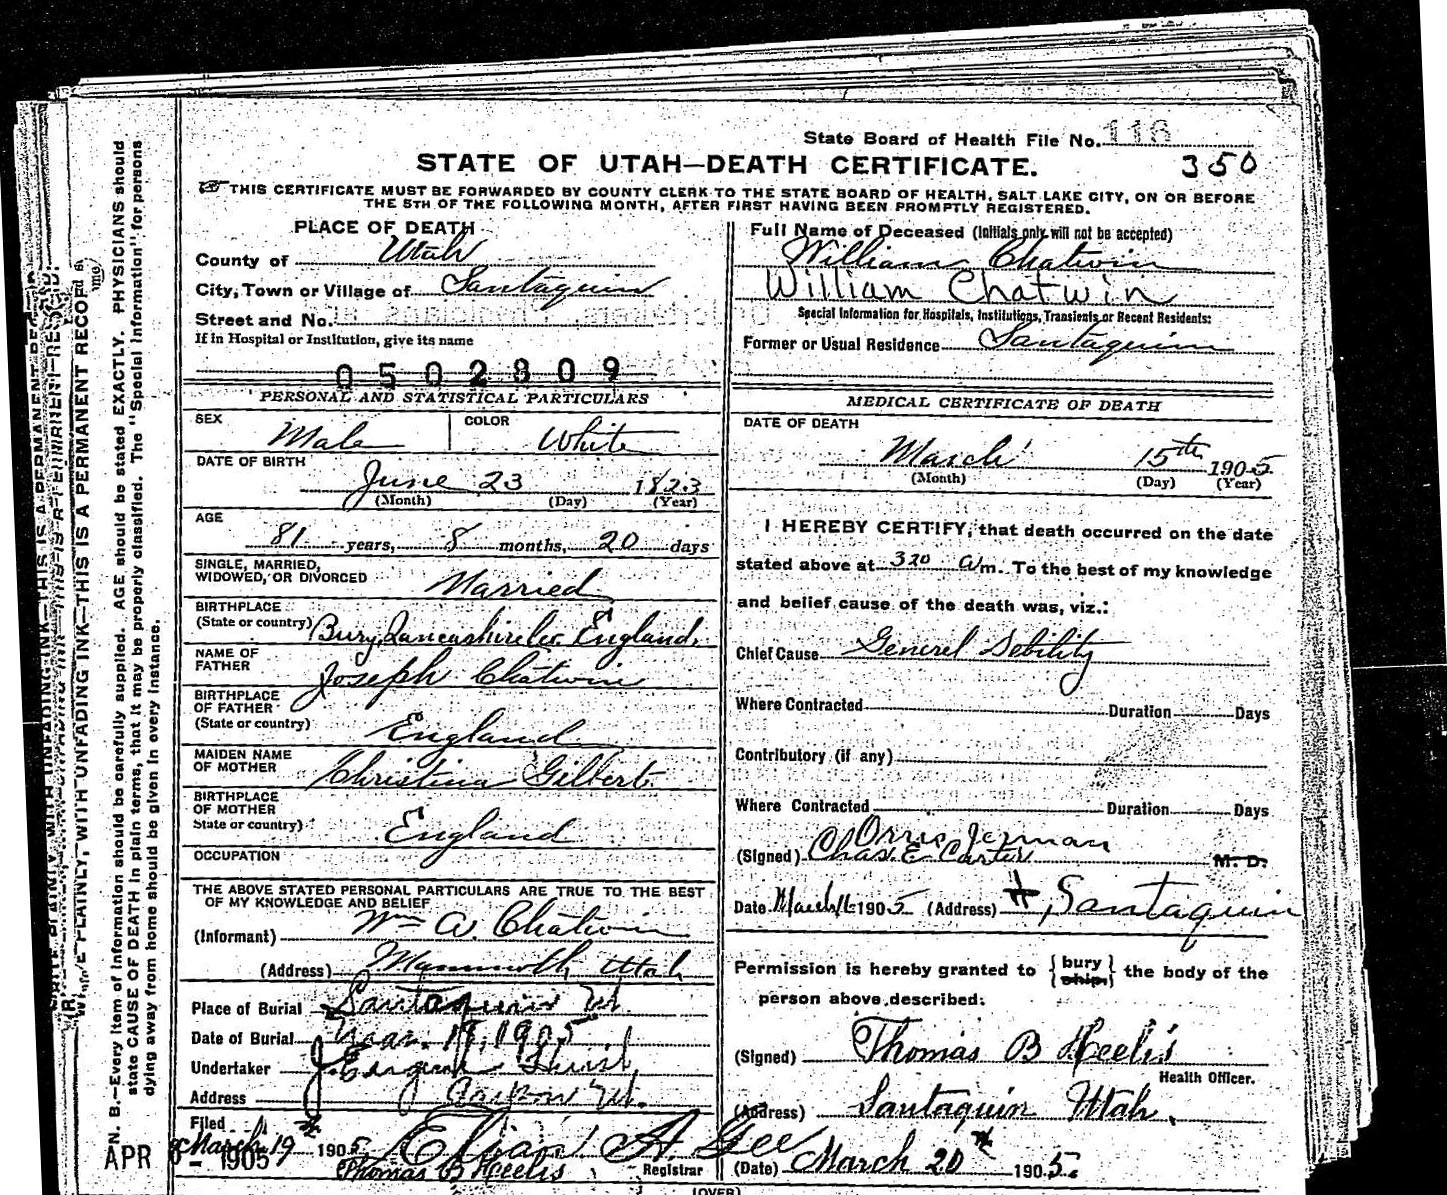 State Board of Health File No. 116
350
STATE OF UTAH—DEATH CERTIFICATE.
THIS CERTIFICATE MUST BE FORWARDED BY COUNTY CLERK TO THE STATE BOARD OF HEALTH, SALT LAKE CITY, ON OR BEFORE
THE 5TH OF THE FOLLOWING MONTH, AFTER FIRST HAVING BEEN PROMPTLY REGISTERED.
PLACE OF DEATH
County of Utah
City, Town or Village of Santaquin
Street and No.
If in Hospital or Institution, give its name
0502809
PERSONAL AND STATISTICAL PARTICULARS
SEX Male COLOR White
DATE OF BIRTH
June 23 1823
(Month) (Day) (Year)
AGE
81 years, 8 months, 20 days
SINGLE, MARRIED,
WIDOWED, OR DIVORCED Married
BIRTHPLACE
(State or country) Bury, Lancashire Co. England.
NAME OF
FATHER Joseph Chatwin
BIRTHPLACE
OF FATHER
(State or country) England
MAIDEN NAME
OF MOTHER Christina Gilbert
BIRTHPLACE
OF MOTHER
State or country) England
OCCUPATION
THE ABOVE STATED PERSONAL PARTICULARS ARE TRUE TO THE BEST
OF MY KNOWLEDGE AND BELIEF
(Informant) Wm A. Chatwin
(Address) Mammoth, Utah
Place of Burial Santaquin Ut.
Date of Burial Mar. 18, 1905
Undertaker J.
Address Ut.
Filed March 19th 1905
APR 8 - 1905
A Gee
Thomas B Heelis Registrar
Full Name of Deceased (Initials only will not be accepted)
William Chatwin
William Chatwin
Special Information for Hospitals, Institutions, Transients or Recent Residents:
Former or Usual Residence Santaquin
MEDICAL CERTIFICATE OF DEATH
DATE OF DEATH
March 15th 1905
(Month) (Day) (Year)
I HEREBY CERTIFY, that death occurred on the date
stated above at 320 a m. To the best of my knowledge
and belief cause of the death was, viz.:
Chief Cause General Debility
Where Contracted Duration Days
Contributory (if any)
Where Contracted Duration Days
Orris Jerman
(Signed) Chas. E Carter M. D.
Date March 16 1905 (Address) Santaquin
Permission is hereby granted to { bury ship } the body of the
person above described:
(Signed) Thomas B Heelis
Health Officer.
(Address) Santaquin Utah.
(Date) March 20th 1905.
(OVER)
WRITE PLAINLY, WITH UNFADING INK—THIS IS A PERMANENT RECORD
N. B.—Every item of information should be carefully supplied. AGE should be stated EXACTLY. PHYSICIANS should
state CAUSE OF DEATH in plain terms, that it may be properly classified. The "Special Information" for persons
dying away from home should be given in every instance.